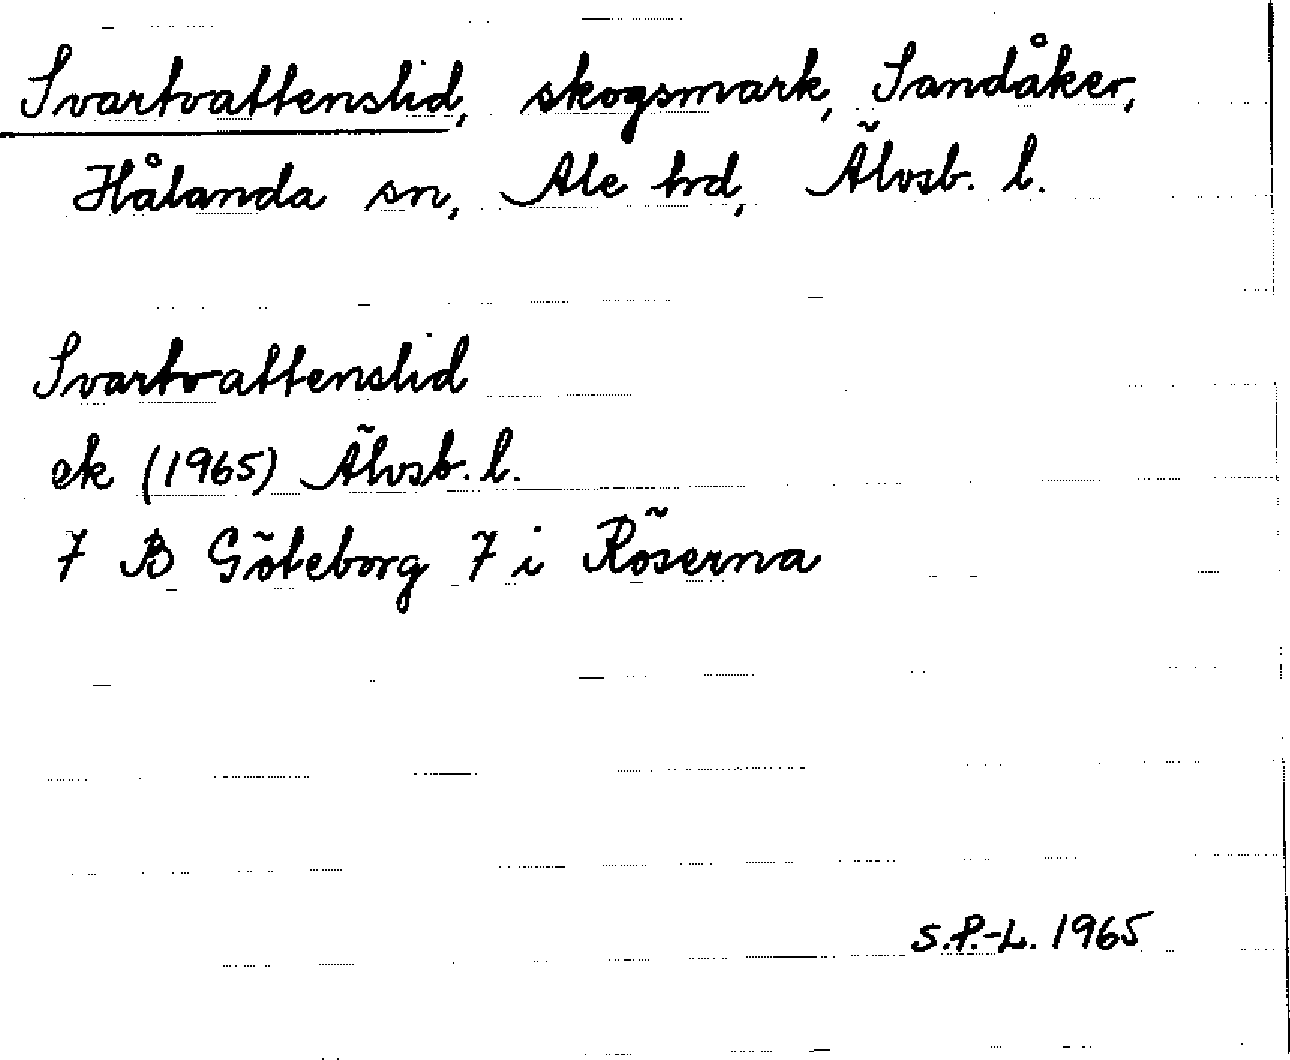 Svartvattenslid, skogsmark, Sandåker,
Hålanda sn, Ale hrd, Älvsb. l.
Svartvattenslid
ek (1965) Älvsb. l.
7 B Göteborg 7 i Röserna
S.P.-L. 1965